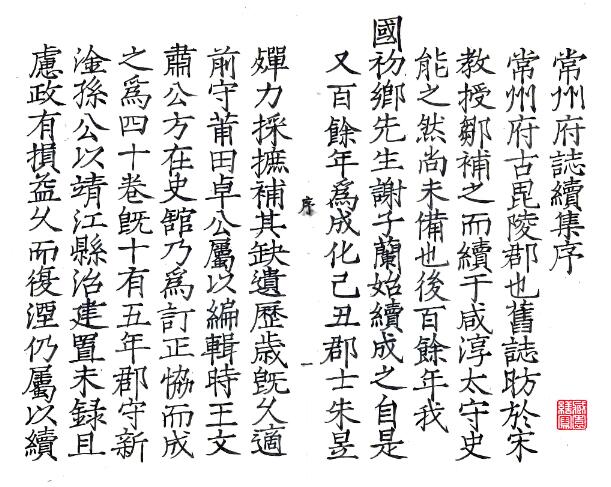 常州府誌續集序
常州府古毘陵郡也舊誌昉於宋
教授鄒補之而續于咸淳太守史
能之然尚未備也後百餘年我
國初鄉先生謝子蘭始續成之自是
又百餘年爲成化己丑郡士朱昱
序
一
殫力採摭補其缺遺歷歲旣久適
前守莆田卓公屬以編輯時王文
肅公方在史舘乃爲訂正恊而成
之爲四十卷旣十有五年郡守新
淦孫公以靖江縣治建置未録且
慮政有損益久而復湮仍屬以續